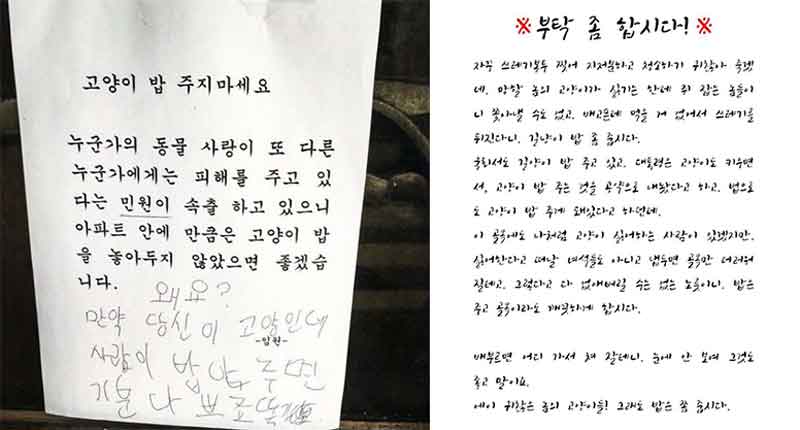 고양이 밥 주지마세요
누군가의 동물 사랑이 또 다른
누군가에게는 피해를 주고 있
다는 민원이 속출 하고 있으니
아파트 안에 만큼은 고양이 밥
을 놓아두지 않았으면 좋겠습
니다.
왜요?
만약 당신이 고양인데
-임원-
사람이 밥 안 주면
기분 나쁘죠 똑같
※부탁 좀 합시다!※
자꾸 쓰레기봉투 찢어 지저분하고 청소하기 귀찮아 죽겠
네. 망할 놈의 고양이가 싫기는 한데 쥐 잡는 놈들이
니 쫓아낼 수도 없고. 배고픈데 먹을 게 없어서 쓰레기를
뒤진다니. 길냥이 밥 좀 줍시다.
국회서도 길냥이 밥 주고 있고. 대통령은 고양이도 키우면
서, 고양이 밥 주는 것을 공약으로 내놨다고 하고. 법으로
도 고양이 밥 주게 돼있다고 하던데.
이 골목에도 나처럼 고양이 싫어하는 사람이 있겠지만.
싫어한다고 떠날 녀석들도 아니고 냅두면 골목만 더러워
질테고. 그렇다고 다 없애버릴 수는 없는 노릇이니. 밥은
주고 골목이라도 깨끗하게 합시다.
배부르면 어디 가서 쳐 잘테니. 눈에 안 보여 그것도
좋고 말이요.
에이 귀찮은 놈의 고양이들! 그래도 밥은 좀 줍시다.